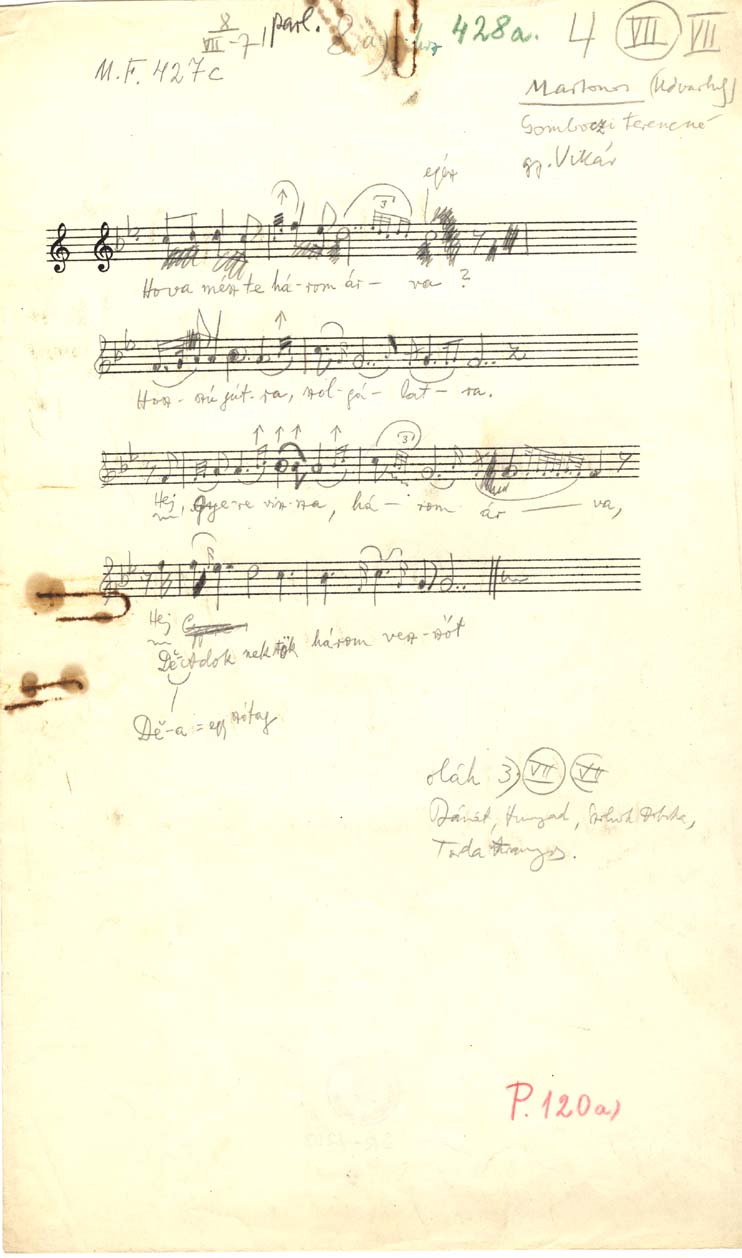 8
VII-7 parl. 8a) 428a. 4 VII VII
M.F. 427c
Martonos (Udvarhely)
Gomboczi Ferencné
gy. Vikár
egész
3
Hova mész te há-rom ár- va ?
Hosz-szú jút-ra, szol-gá-lat-ra.
3
Hej, gye-re visz-sza, há-rom ár- va,
Hej
Dĕ-Adok nektök három vesz-szőt
Dĕ-a = egy szótag
oláh 3) VII VII
Bánát, Hunyad, Szolnok Doboka,
Torda Aranyos.
P. 120a)